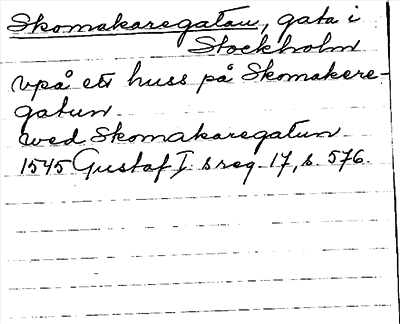 Skomakaregatan, gata i
Stockholm
vpå ett huss på Skomakere-
gatun
wed Skomakaregatun
1545 Gustaf I:s reg. 17, s. 576.